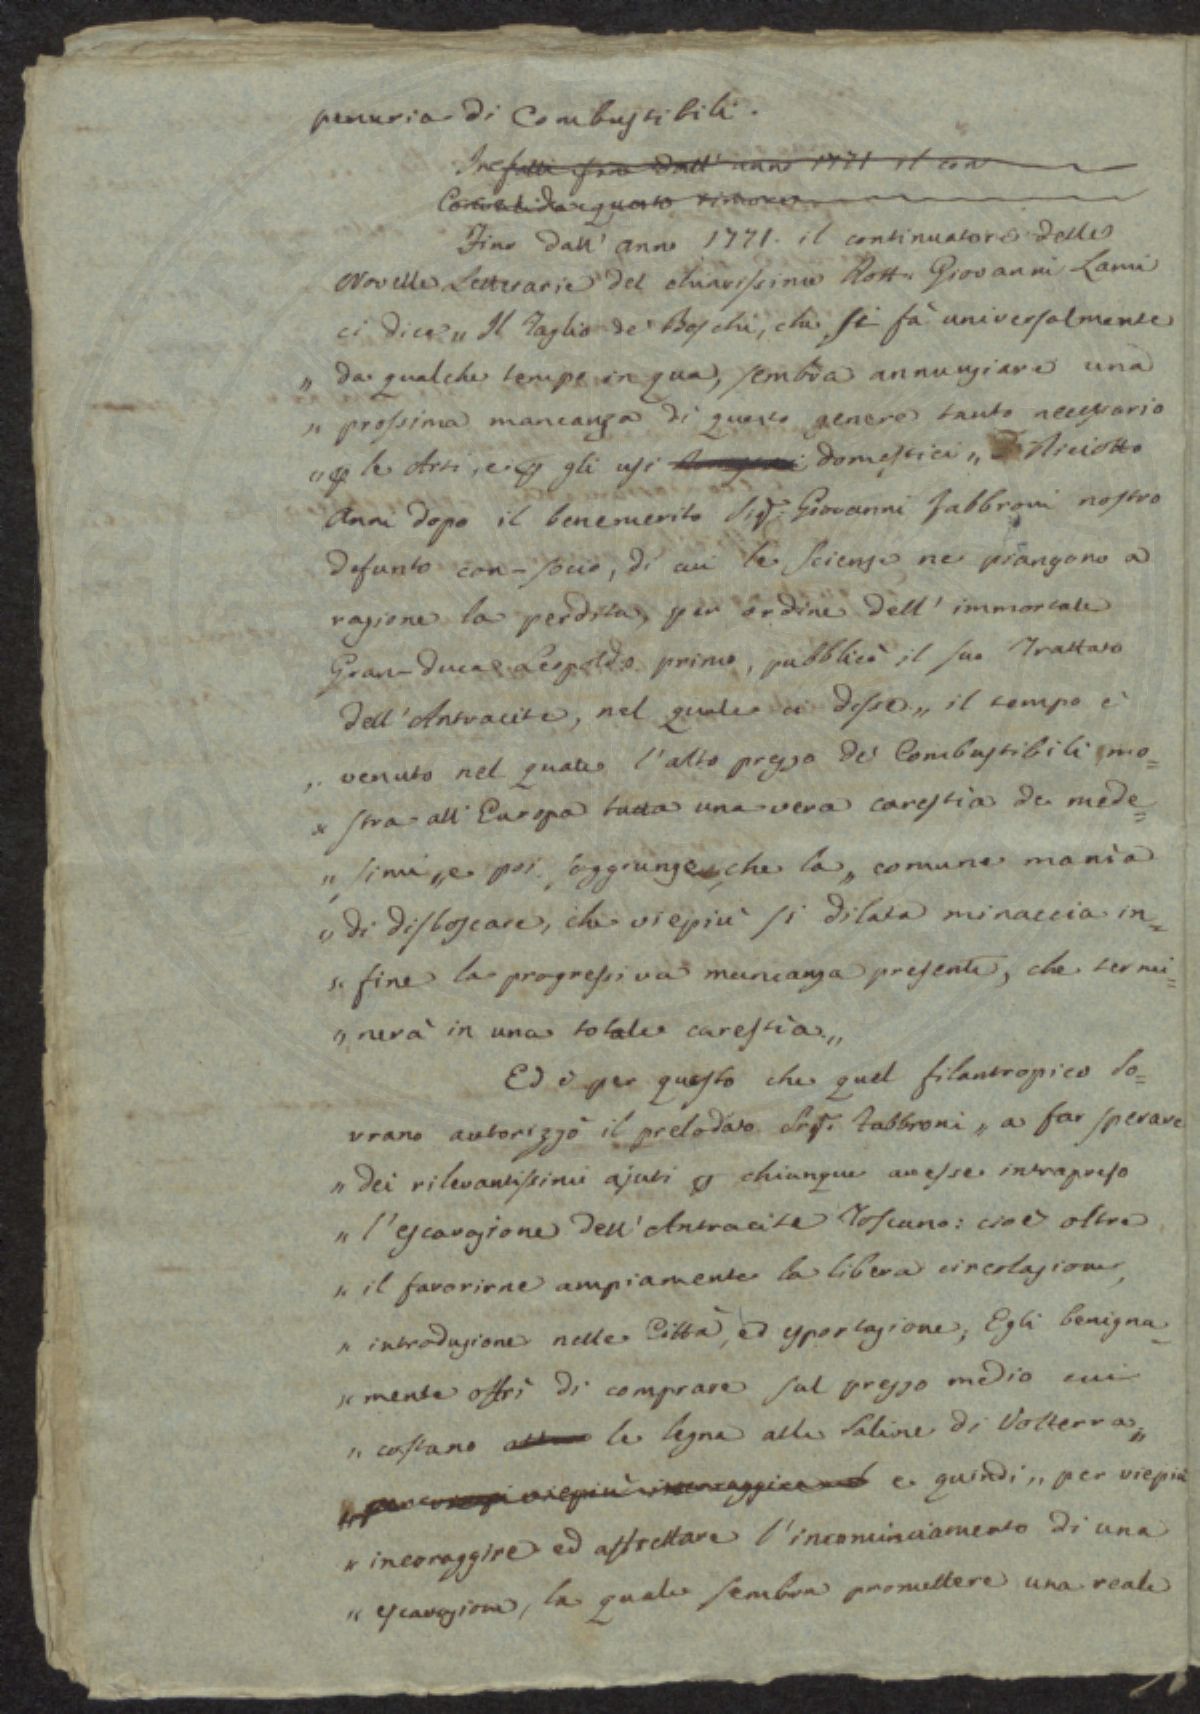 penuria di Combustibili.
Infatti fino dall' anno 1771 il con
questo
Fino dall' anno 1771. il continuatore delle
Novelle Letterarie del chiarissimo Dott. Giovanni Lami
ci dice „ Il Taglio de' Boschi, che si fà universalmente
„ da qualche tempo in qua, sembra annunziare una
„ prossima mancanza di questo genere tanto necessario
„ p le Arti, e p gli usi domestici „ Diciotto
Anni dopo il benemerito Sig. Giovanni Fabbroni nostro
defunto con-socio, di cui le Scienze ne piangono a
ragione la perdita, per ordine dell' immortale
Gran-Duca Leopoldo primo, pubblicò il suo Trattato
dell' Antracite, nel quale ci disse „ il tempo è
„ venuto nel quale l'alto prezzo dei Combustibili mo=
„ stra all' Europa tutta una vera carestia de mede=
„ simi „ e poi soggiunge, che la „ comune manìa
„ di disboscare, che viepiù si dilata minaccia in=
„ fine la progressiva mancanza presente, che termi=
„ nerà in una totale carestìa „
Ed è per questo che quel filantropico So=
vrano autorizzò il prelodato Sig. Fabbroni „ a far sperare
„ dei rilevantissimi ajuti p chiunque avesse intrapreso
„ l'escavazione dell' Antracite Toscano: cioè oltre
„ il favorirne ampiamente la libera circolazione,
„ introduzione nelle Città, ed esportazione, Egli benigna=
„ mente offrì di comprare sul prezzo medio cui
„ costano le legna alle Saline di Volterra „
per viepiù incoraggire ed e quindi „ per viepiù
„ incoraggire ed affrettare l'incominciamento di una
„ escavazione, la quale sembra promettere una reale